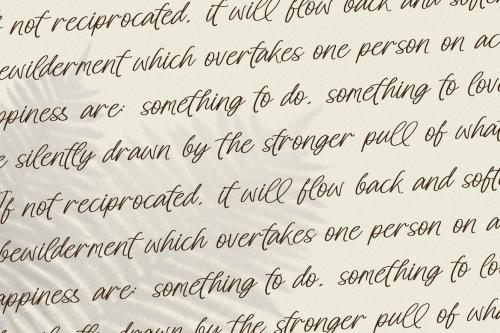 not reciprocated. it will flow back and
bewilderment which overtakes one person on
appiness are: something to do. something to
silently drawn by the stronger pull of what
If not reciprocated. it will flow back and soft
bewilderment which overtakes one person on a
appiness are: something to do. something to lo
drawn by the stronger pull of